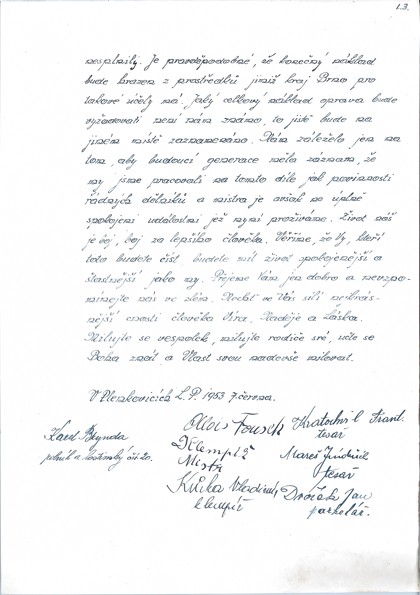 13.
nesplnily. Je pravděpodobné, že konečný náklad
bude hrazen z prostředků jimiž kraj Brno pro
takové účely má. Jaký celkový náklad oprava bude
vyžadovati není nám známo, to jistě bude na
jiném místě zaznamenáno. Nám záleželo jen na
tom, aby budoucí generace měla záznam, že
my jsme pracovali na tomto díle jak povinnosti
řádných dělníků a mistra je avšak ne úplně
spokojeni událostmi jež nyní prožíváme. Život náš
je boj, boj za lepšího člověka. Věříme, že Vy, kteří
toto budete číst budete míti život spokojenější a
šťastnější jako my. Přejeme Vám jen dobro a nevzpo-
mínejte nás ve zlém. Nechť ve Vás sílí nejkrás-
nější cnosti člověka Víra, Naděje a Láska.
Milujte se vespolek, milujte rodiče své, učte se
Boha znát a Vlast svou nadevše milovat.
V Plenkovicích L.P. 1953 7. června.
Karel Brynda
čp. 20.
Alois Fousek
Klempíř
Mistr
Kůrka Vladimír
klempíř
Kratochvíl Frant.
tesař
Mareš Jindřich
tesař
Dvořák Jan